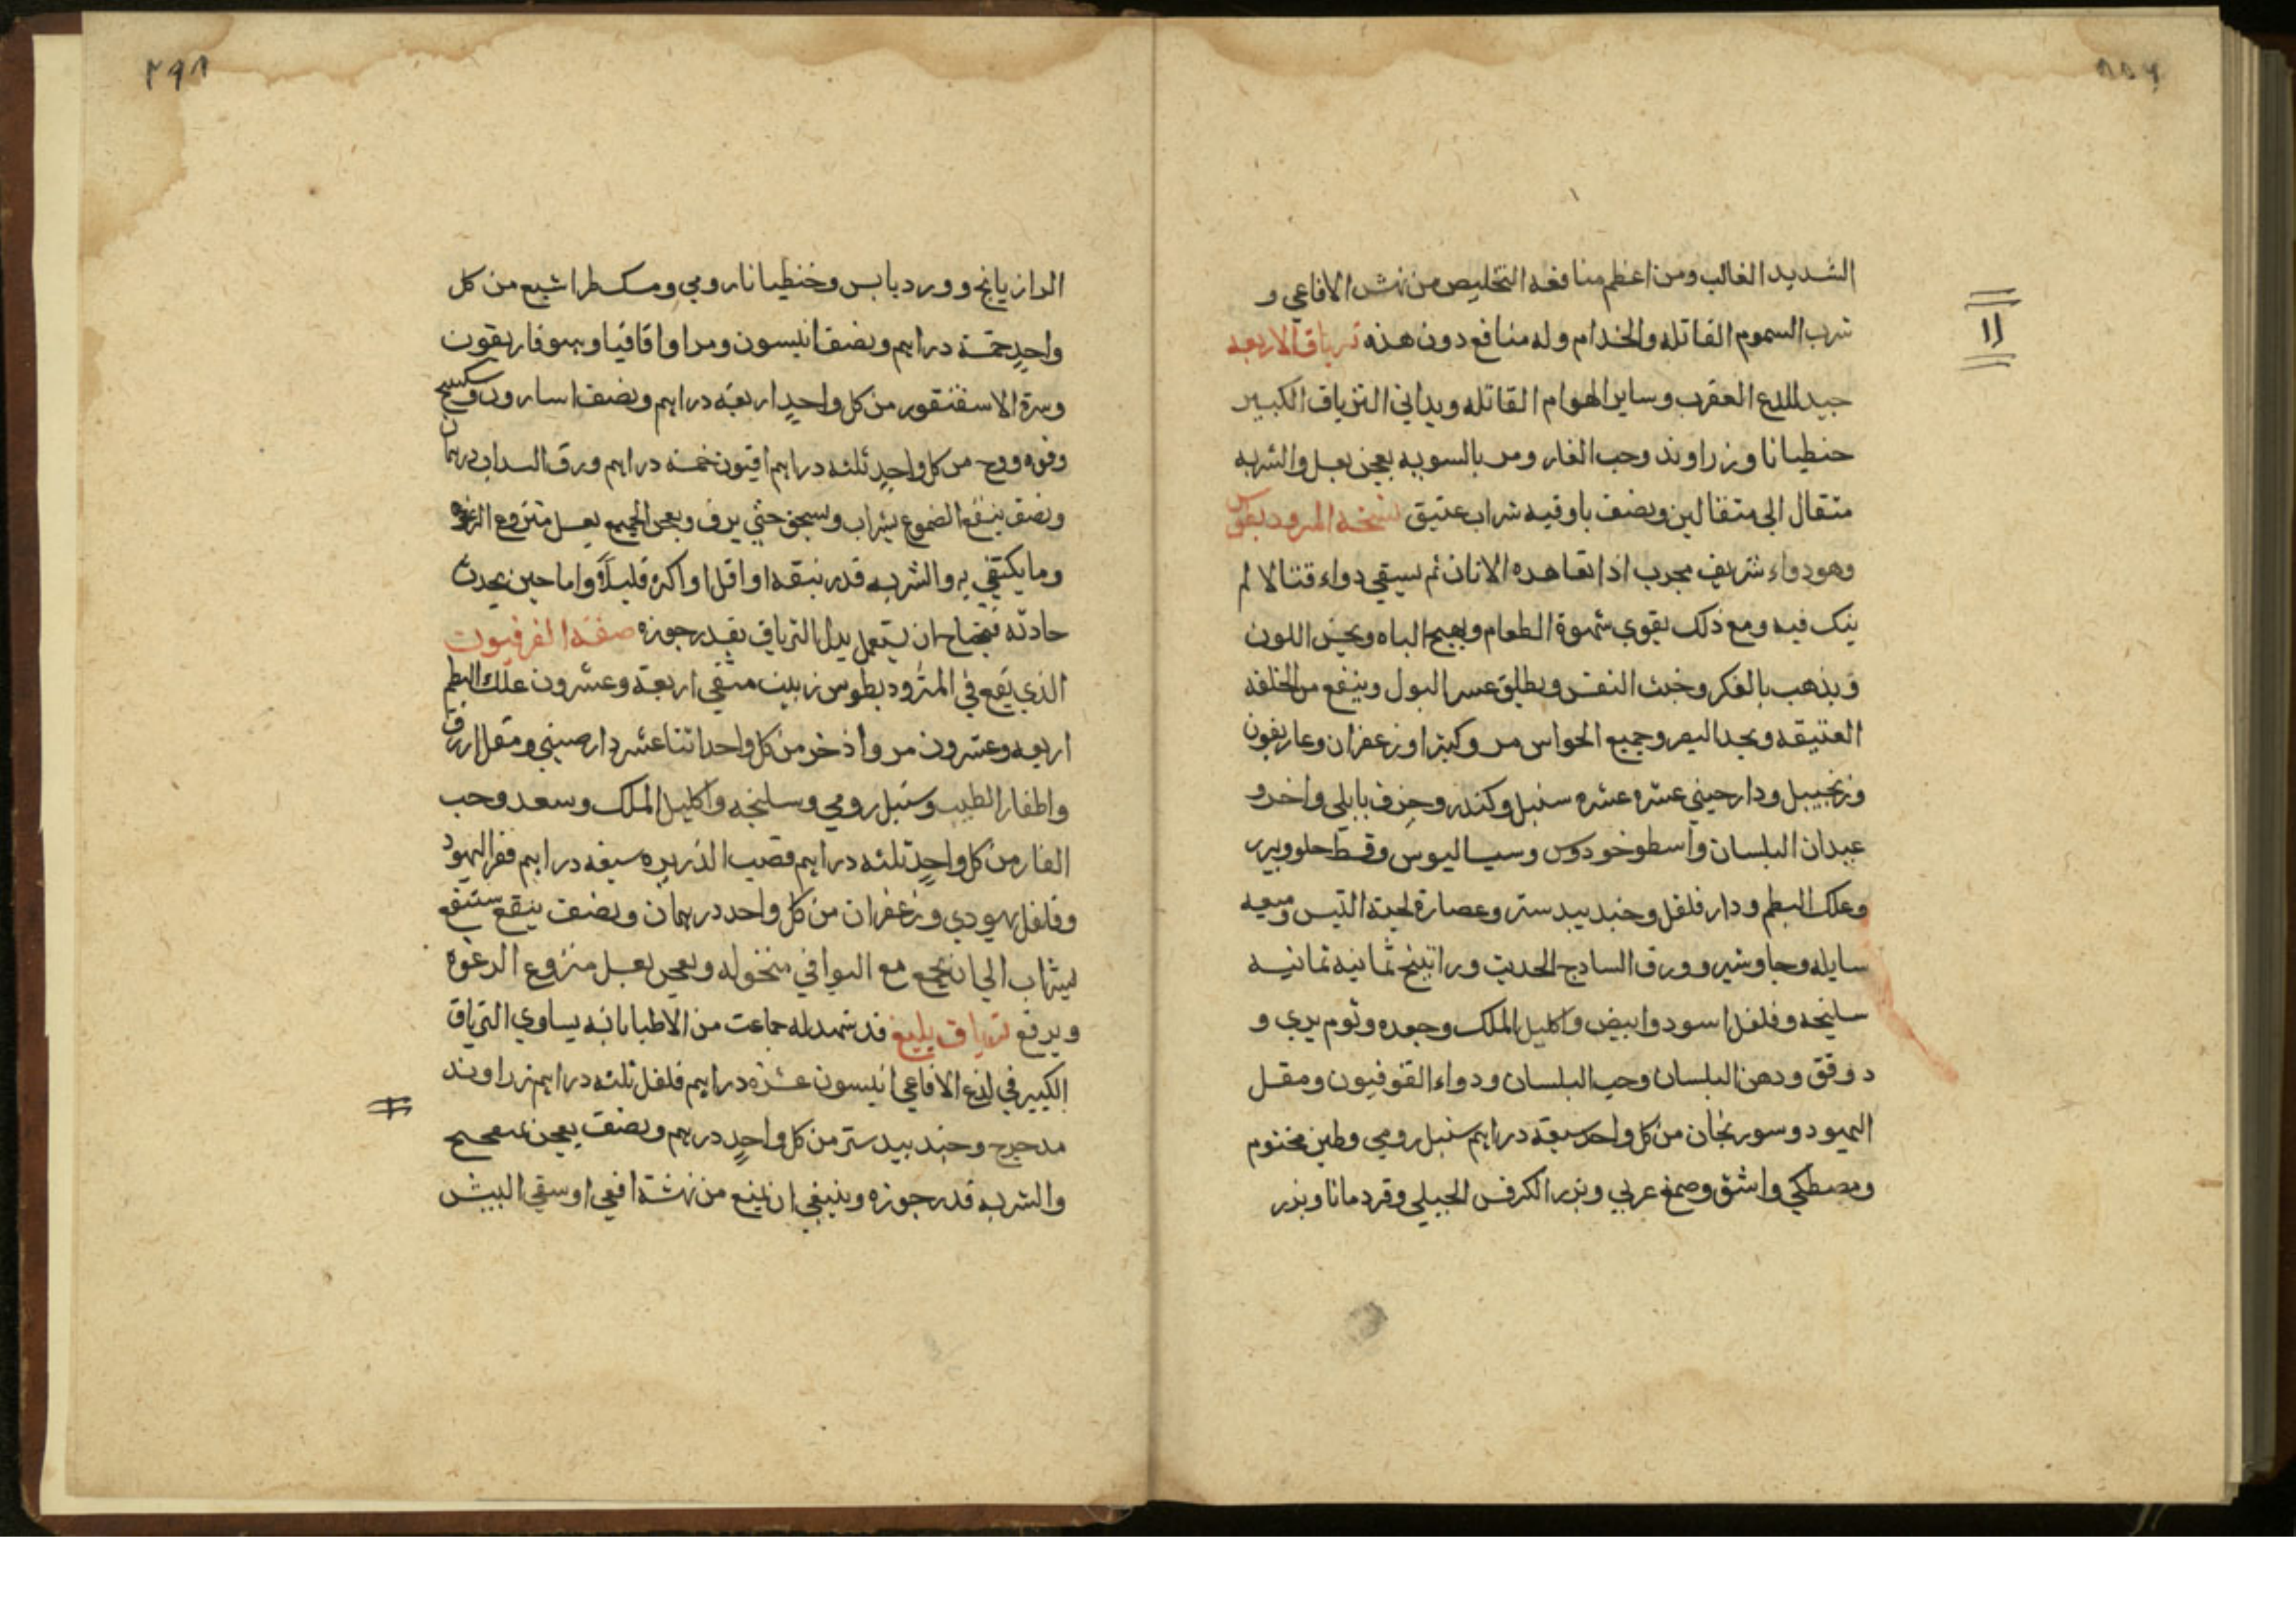 الشديد الغالب ومن اعظم منافعه التخليص من نهش الافاعي و
شرب السموم القاتله والجذام وله منافع دون هذه ترياق الاربعه
جيد للدغ العقرب وساير الهوام القاتله ويداني الترياق الكبير
حنطيانا وزراوند وحب الغار ومر بالسويه يعجن بعسل والشربه
مثقال الى مثقالين ونصف باوقيه شراب عتيق نسخه المرود يطوس
وهو دواء شريف مجرب اذا تعاهده الانسان ثم سقي دواء قتالا لم
ينك فيه ومع ذلك يقوي شهوة الطعام ويهيج الباه ويحسن اللون
ويذهب بالفكر وخبث النفس ويطلق عسر البول وينفع من الخلفه
العتيقه ويحد البصر وجميع الحواس مر وكيترا وزعفران وغاريقون
وزنجبيل ودارصيني عشره عشره سنبل وكندر وحرف بابلي واذخر و
عيدان البلسان واسطوخودوس وسيساليوس وقسط حلو
وعلك البطم ودار فلفل وجندبيدستر وعصارة لحية التيس وميعه
سايله وجاوشير وورق السادج الحديث وراتينج ثمانيه ثمانيه
سليخه وفلفل اسود وابيض واكليل الملك وجعده وثوم بري و
دوقو ودهن البلسان وحب البلسان ودواء القوفيون ومقل
اليهود وسورنجان من كل واحد سبعه دراهم سنبل رومي وطين مختوم
ومصطكي واشق وصمغ عربي وبزر الكرفس الجبلي وقردمانا وبزر
الرازيانج وورد يابس وخنطيانا رومي ومسكطراشيع من كل
واحدٍ خمسة دراهم ونصف انيسون ومر اواقاقيا وهيوفاريقون
وسرة الاسقنقور من كل واحدٍ اربعة دراهم ونصف اسارون وسكبينج
وفوه ووج من كل واحدٍ ثلثه دراهم افيون خمسه دراهم ورق السداب درهمان
ونصف ينقع الصموغ بشراب ويسحق حتي يرف ويعجن الجميع بعسل منزوع الرغوه
وما يكتفي به والشربه قدر نبقه او اقل او اكثر قليلاً واما حين يحدث
حادثه فيحتاج ان يستعمل بدل الترياق بقدر جوزه صفة القرفيون
الذي يقع في المثرود يطوس زبيب منقى اربعة وعشرون علك البطم
اربعه وعشرون مر واذخر من كل واحد اثنا عشر دارصيني ومقل ازرق
واظفار الطيب وسنبل رومي وسليخه واكليل الملك وسعد وحب
الغار من كل واحدٍ ثلثه دراهم قصب الذريره سبعه دراهم فقر اليهود
وفلفل يهودي وزعفران من كل واحد درهمان ونصف ينقع
بشراب الى ان يجمع مع البواقي منخوله ويعجن بعسل منزوع الرغوه
ويرفع ترياق بليغ قد شهد له جماعت من الاطبا بانه يساوي الترياق
الكبير في لدغ الافاعي انيسون عشرة دراهم فلفل ثلثه دراهم زراوند
مدحرج وجندبيدستر من كل واحدٍ درهم ونصف يعجن
والشربه قدر جوزه وينبغي ان يمنع من نهشة افعي او سقي البيش